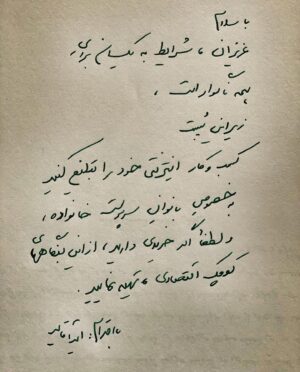 با سلام
عزیزان، شرایط به یکسان برای
همه ناهموار است،
زیرا نی نیست
کسب و کار اینترنتی خود را تبلیغ کنید
بخصوص بانوان سرپرست خانواده،
و لطفاً اگر خریدی دارید، از این بنگاههای
کوچک اقتصادی، تهیه نمایید.
با احترام: